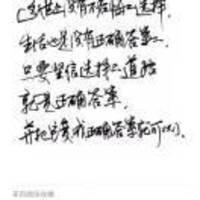 (这世上没有不后悔的选择
生活也是没有正确答案的.
只要坚信选择的道路
就是正确答案.
并把它变成正确答案就可以了.